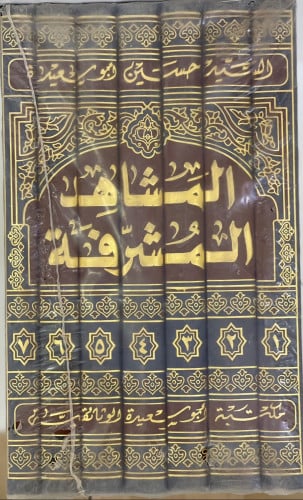 السيد حسين ابو سعيدة
المشاهد
المشرّفة
١ ٢ ٣ ٤ ٥ ٦ ٧
مكتبة ابو سعيدة الوثائقية